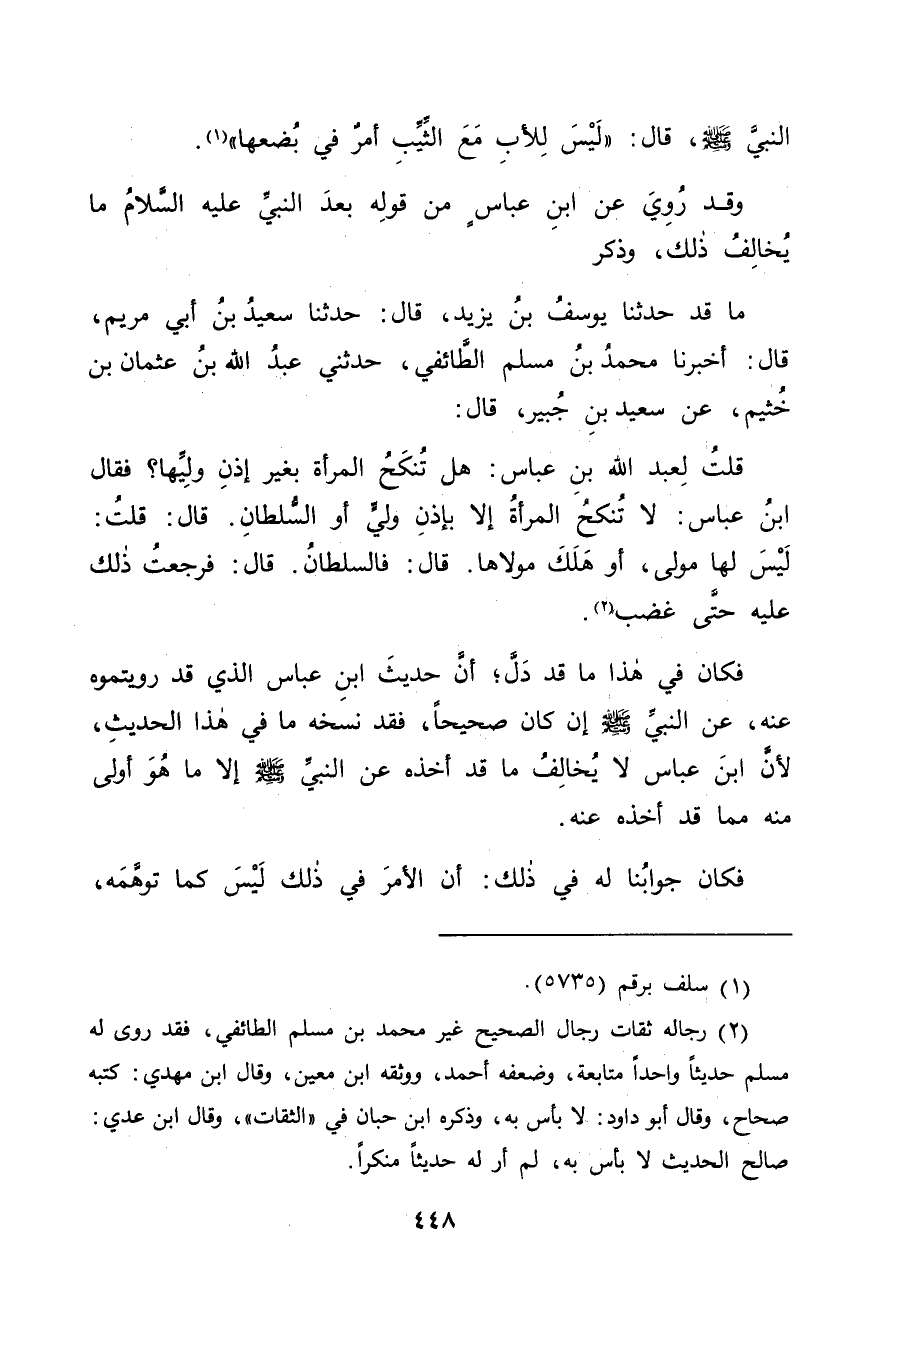 النبيَّ ﷺ، قال: «لَيْسَ لِلأبِ مَعَ الثَّيِّبِ أمرٌ في بُضعها»(١).
وقـد رُوِيَ عن ابنِ عباسٍ من قولِه بعدَ النبيِّ عليه السَّلامُ ما
يُخالِفُ ذٰلك، وذكر
ما قد حدثنا يوسفُ بنُ يزيد، قال: حدثنا سعيدُ بنُ أبي مريم،
قال: أخبرنا محمدُ بنُ مسلم الطَّائفي، حدثني عبدُ الله بنُ عثمان بن
خُثيم، عن سعيد بنِ جُبير، قال:
قلتُ لِعبد الله بنِ عباس: هل تُنكَحُ المرأة بغير إذنِ وليِّها؟ فقال
ابنُ عباس: لا تُنكحُ المرأةُ إلا بإذنِ وليٍّ أو السُّلطانِ. قال: قلتُ:
لَيْسَ لها مولى، أو هَلَكَ مولاها. قال: فالسلطانُ. قال: فرجعتُ ذٰلك
عليه حتَّى غضب(٢).
فكان في هٰذا ما قد دَلَّ؛ أنَّ حديثَ ابنِ عباس الذي قد رويتموه
عنه، عن النبيِّ ﷺ إن كان صحيحاً، فقد نسخه ما في هٰذا الحديثِ،
لأنَّ ابنَ عباس لا يُخالِفُ ما قد أخذه عن النبيِّ ﷺ إلا ما هُوَ أولى
منه مما قد أخذه عنه.
فكان جوابُنا له في ذٰلك: أن الأمرَ في ذٰلك لَيْسَ كما توهَّمَه،
(١) سلف برقم (٥٧٣٥).
(٢) رجاله ثقات رجال الصحيح غير محمد بن مسلم الطائفي، فقد روى له
مسلم حديثاً واحداً متابعة، وضعفه أحمد، ووثقه ابن معين، وقال ابن مهدي: كتبه
صحاح، وقال أبو داود: لا بأس به، وذكره ابن حبان في «الثقات»، وقال ابن عدي:
صالح الحديث لا بأس به، لم أر له حديثاً منكراً.
٤٤٨